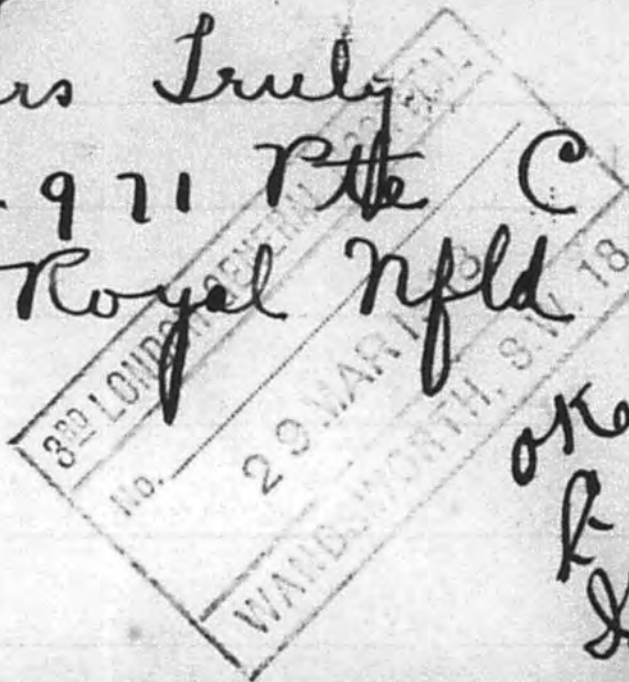 rs Truly
971 Pte C
Royal Nfld
3RD LONDON GENERAL HOSPITAL
No.
29 MAR 1918
WANDSWORTH. S.W. 18